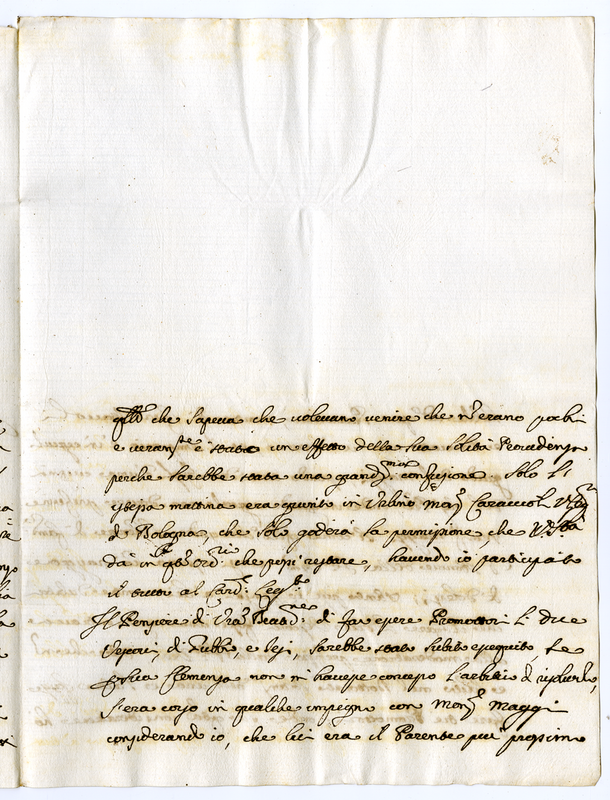 che sapeua che uoleuano uenire che nõ erano pochi
e ueram.te è stato un effetto della sua solita Prouidenza
perche sarebbe stata una grand.ma confusione. Solo li
mattina era giunto in Urbino Mons.r Caraccioli
di Bologna, che solo goderà la permissione che V. S.tà
dà in che possi restare, hauendo io participato
il tutto al Card. Leg.to
Il Pensiere di V.ra Beatid.ne di far essere Promotori li due
Vescoui di Gubbio, e Iesi, sarebbe stato subito eseguito, se
sua Clemenza non m hauesse concesso l'arbitrio di risoluerlo,
S'era corso in qualche impegno con Mons.r Maggi
considerando io, che lui era il Parente piu prossimo